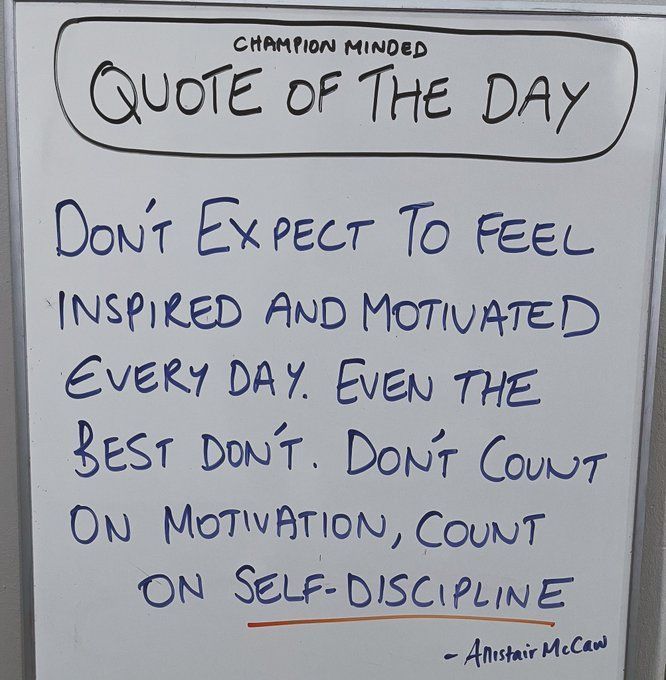 CHAMPION MINDED
QUOTE OF THE DAY
DON'T EXPECT TO FEEL
INSPIRED AND MOTIVATED
EVERY DAY. EVEN THE
BEST DON'T. DON'T COUNT
ON MOTIVATION, COUNT
ON SELF-DISCIPLINE
- Allistair McCaw